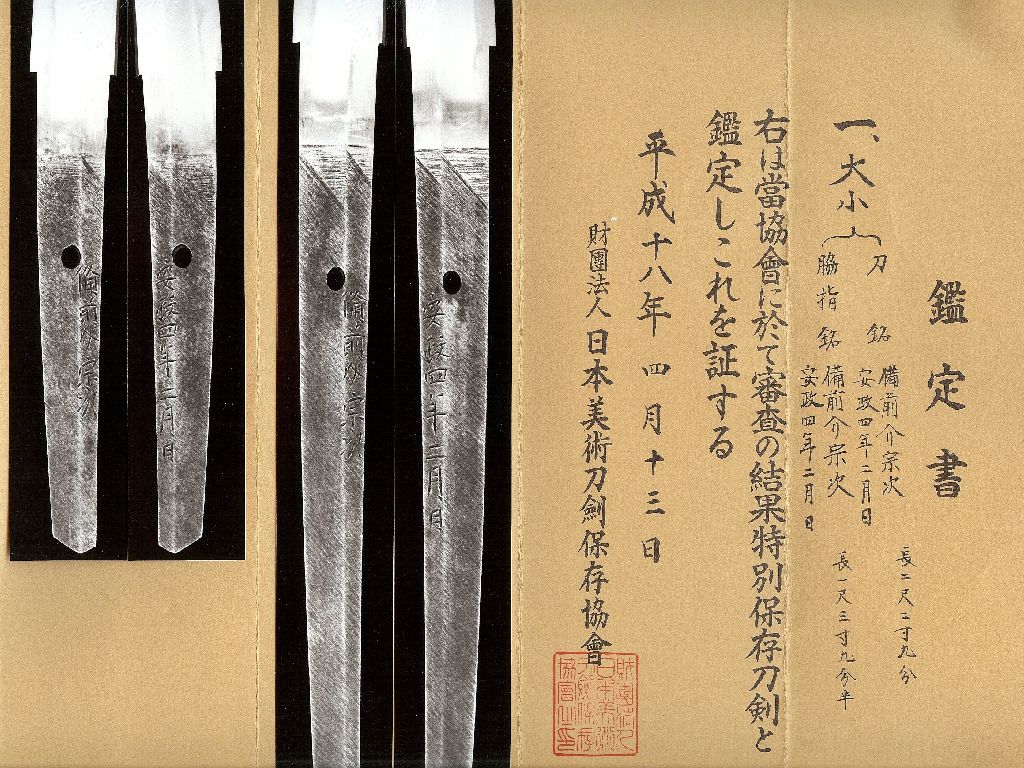 鑑定書
一、大小
刀 銘 備前介宗次
安政四年二月日
長二尺二寸九分
脇指 銘 備前介宗次
安政四年二月日
長一尺三寸九分半
右は當協會に於て審査の結果特別保存刀剣と
鑑定しこれを証する
平成十八年四月十三日
財團法人日本美術刀劍保存協會
備前介宗次
安政四年二月日
備前介宗次
安政四年二月日